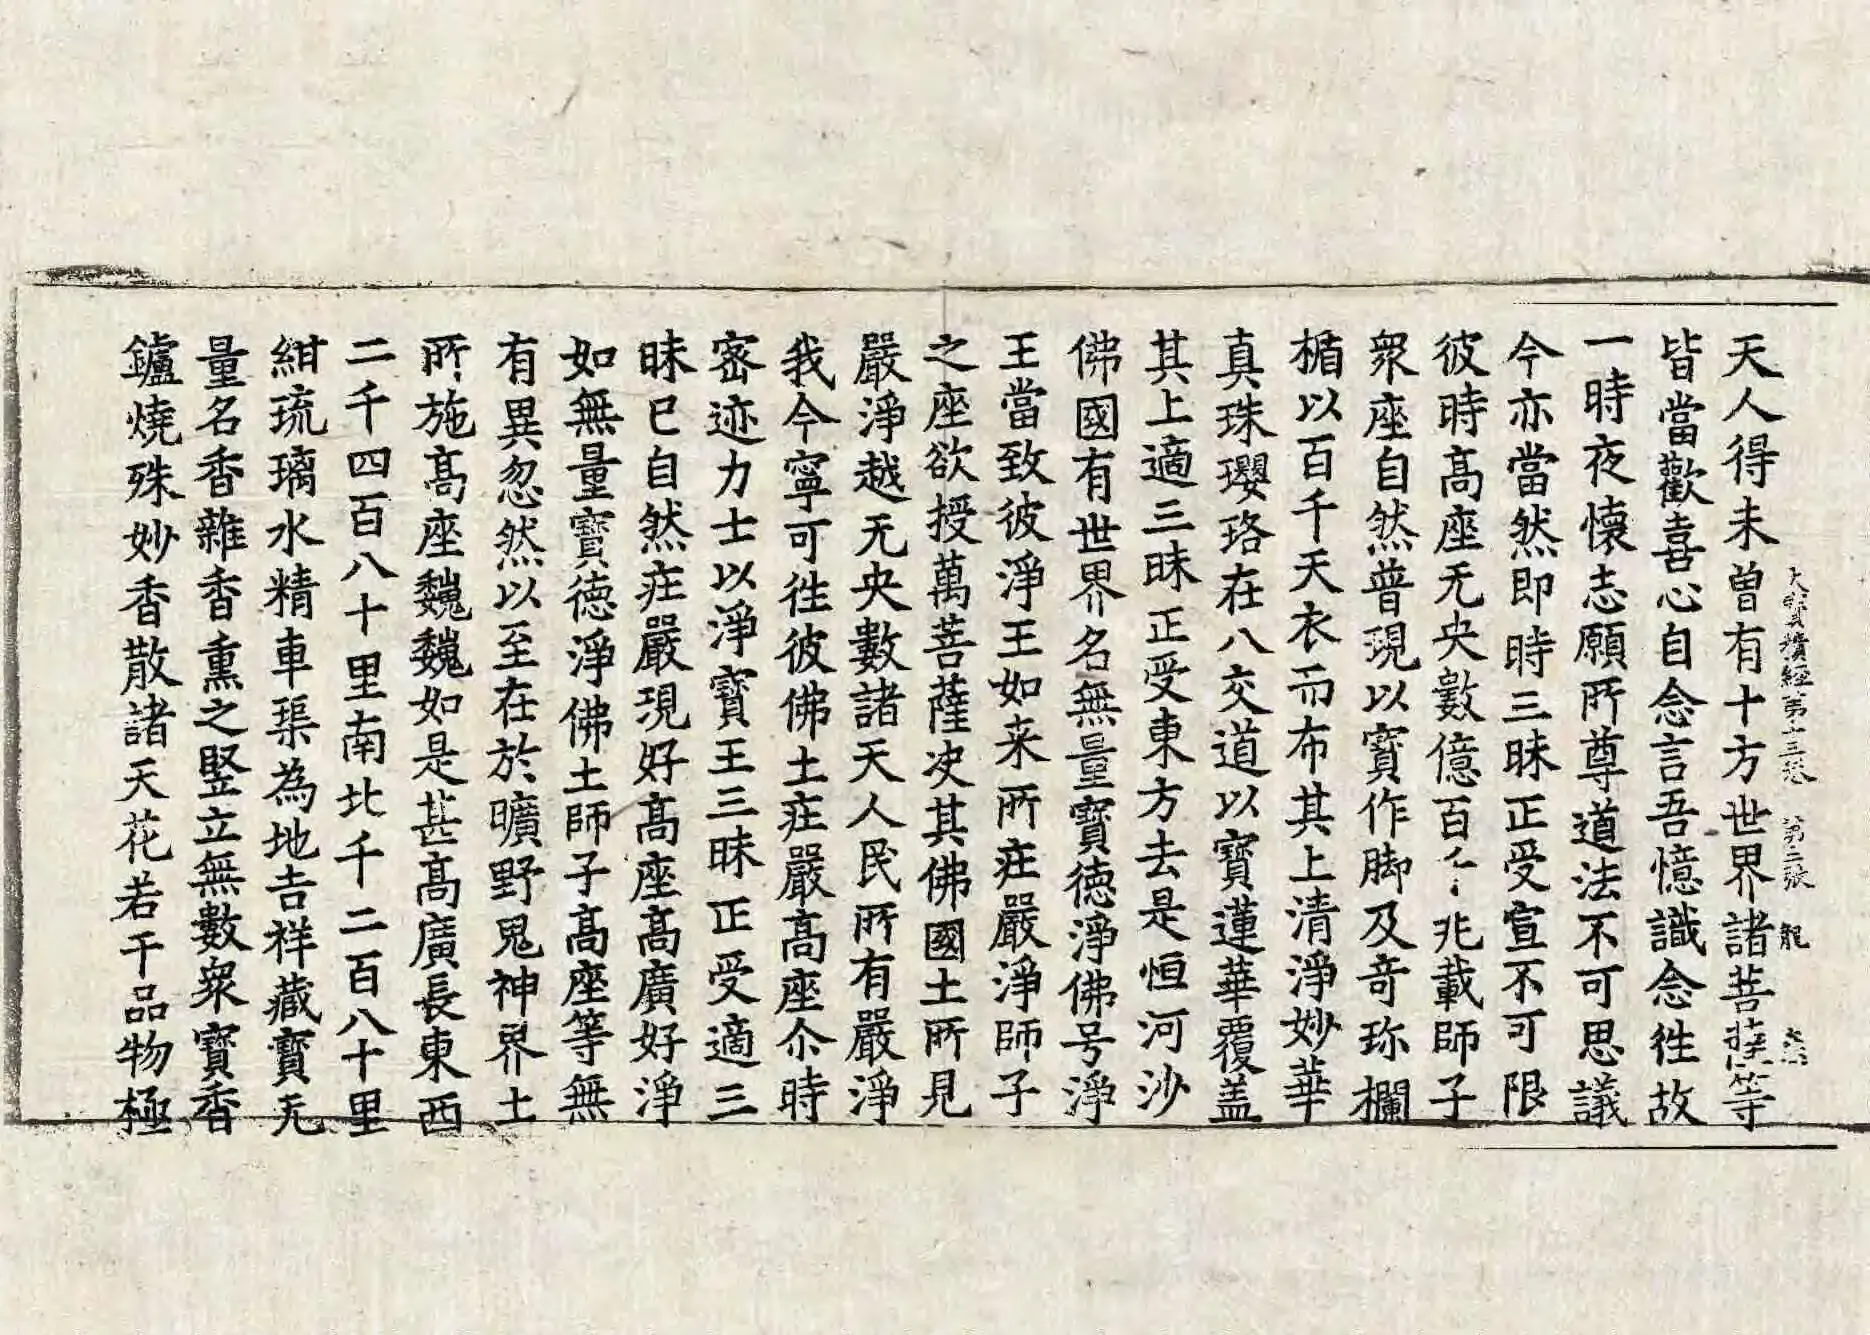 大寳積經第十三卷 第二張 龍
天人得未曽有十方世界諸菩薩等
皆當歡喜心自念言吾憶識念徃故
一時夜懷志願所尊道法不可思議
今亦當然即時三昧正受宣不可限
彼時高座无央數億百千兆載師子
衆座自然普現以寳作脚及竒珎欄
楯以百千天衣而布其上清淨妙華
真珠瓔珞在八交道以寳蓮華覆盖
其上適三昧正受東方去是恒河沙
佛國有世界名無量寳徳淨佛号淨
王當致彼淨王如来所莊嚴淨師子
之座欲授萬菩薩决其佛國土所見
嚴淨越无央數諸天人民所有嚴淨
我今寧可徃彼佛土莊嚴高座尒時
密迹力士以淨寳王三昧正受適三
昧已自然莊嚴現好高座高廣好淨
如無量寳徳淨佛土師子高座等無
有異忽然以至在於曠野鬼神界土
所施高座巍巍如是甚高廣長東西
二千四百八十里南北千二百八十里
紺琉璃水精車渠為地吉祥藏寳无
量名香雜香熏之竪立無數衆寳香
鑪燒殊妙香散諸天花若干品物極